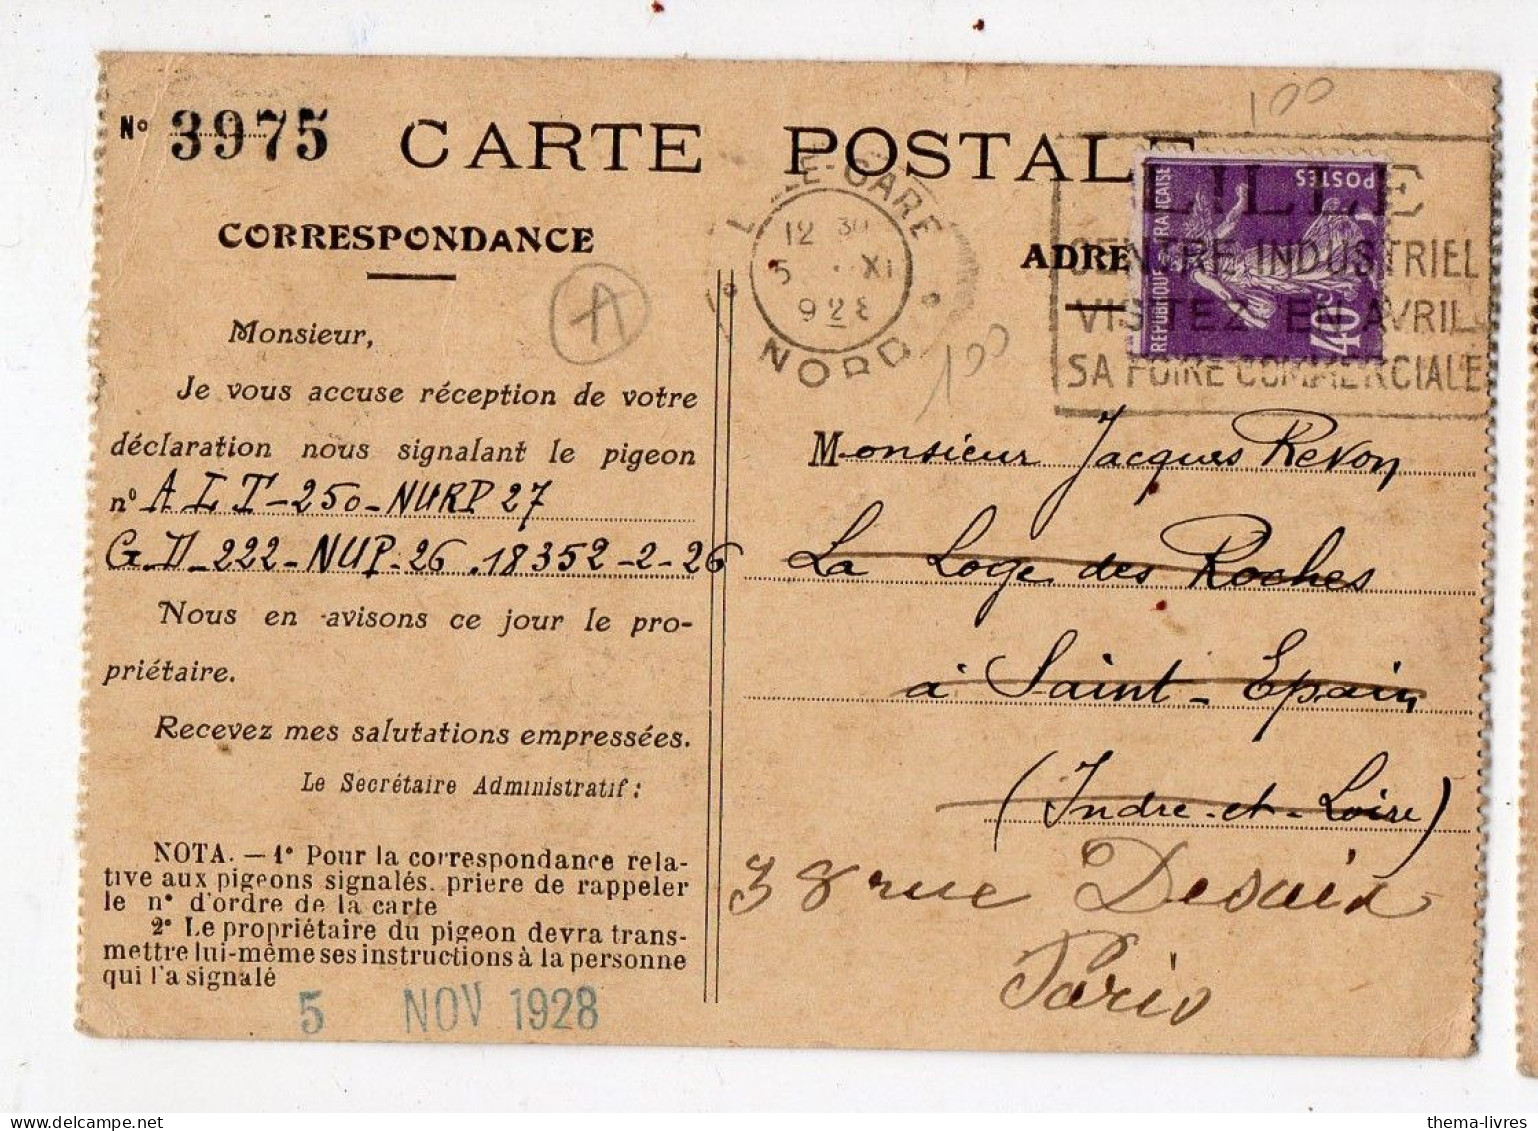 100
Nº 3975 CARTE POSTALE
CORRESPONDANCE
A
Monsieur,
Je vous accuse réception de votre
déclaration nous signalant le pigeon
nº A L T-250-NURP 27
G.D-222-NUP-26.18352-2-26
Nous en avisons ce jour le pro-
priétaire.
Recevez mes salutations empressées.
Le Secrétaire Administratif :
NOTA. — 1º Pour la correspondance rela-
tive aux pigeons signalés. priere de rappeler
le nº d'ordre de la carte
2º Le propriétaire du pigeon devra trans-
mettre lui-même ses instructions à la personne
qui l'a signalé
5 NOV 1928
LILLE-GARE
12 30
5 XI
928
NORD
100
ADRE
REPUBLIQUE FRANCAISE
POSTES
40c
LILLE
CENTRE INDUSTRIEL
VISITEZ EN AVRIL
SA FOIRE COMMERCIALE
Monsieur Jacques Revon
La Loge des Roches
à Saint-Epain
(Indre-et-Loire)
38 rue Desaix
Paris
thema-livres